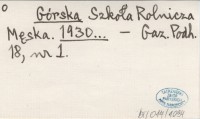 Górska Szkoła Rolnicza
Męska. 1930... — Gaz. Podh.
18, nr 1.